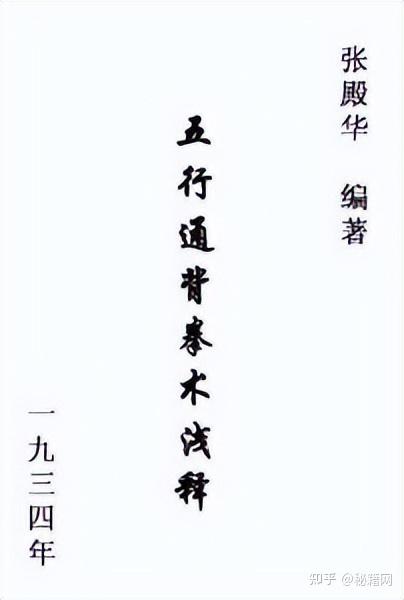 张殿华 编著
五行通背拳术浅释
一九三四年
知乎 @秘籍网